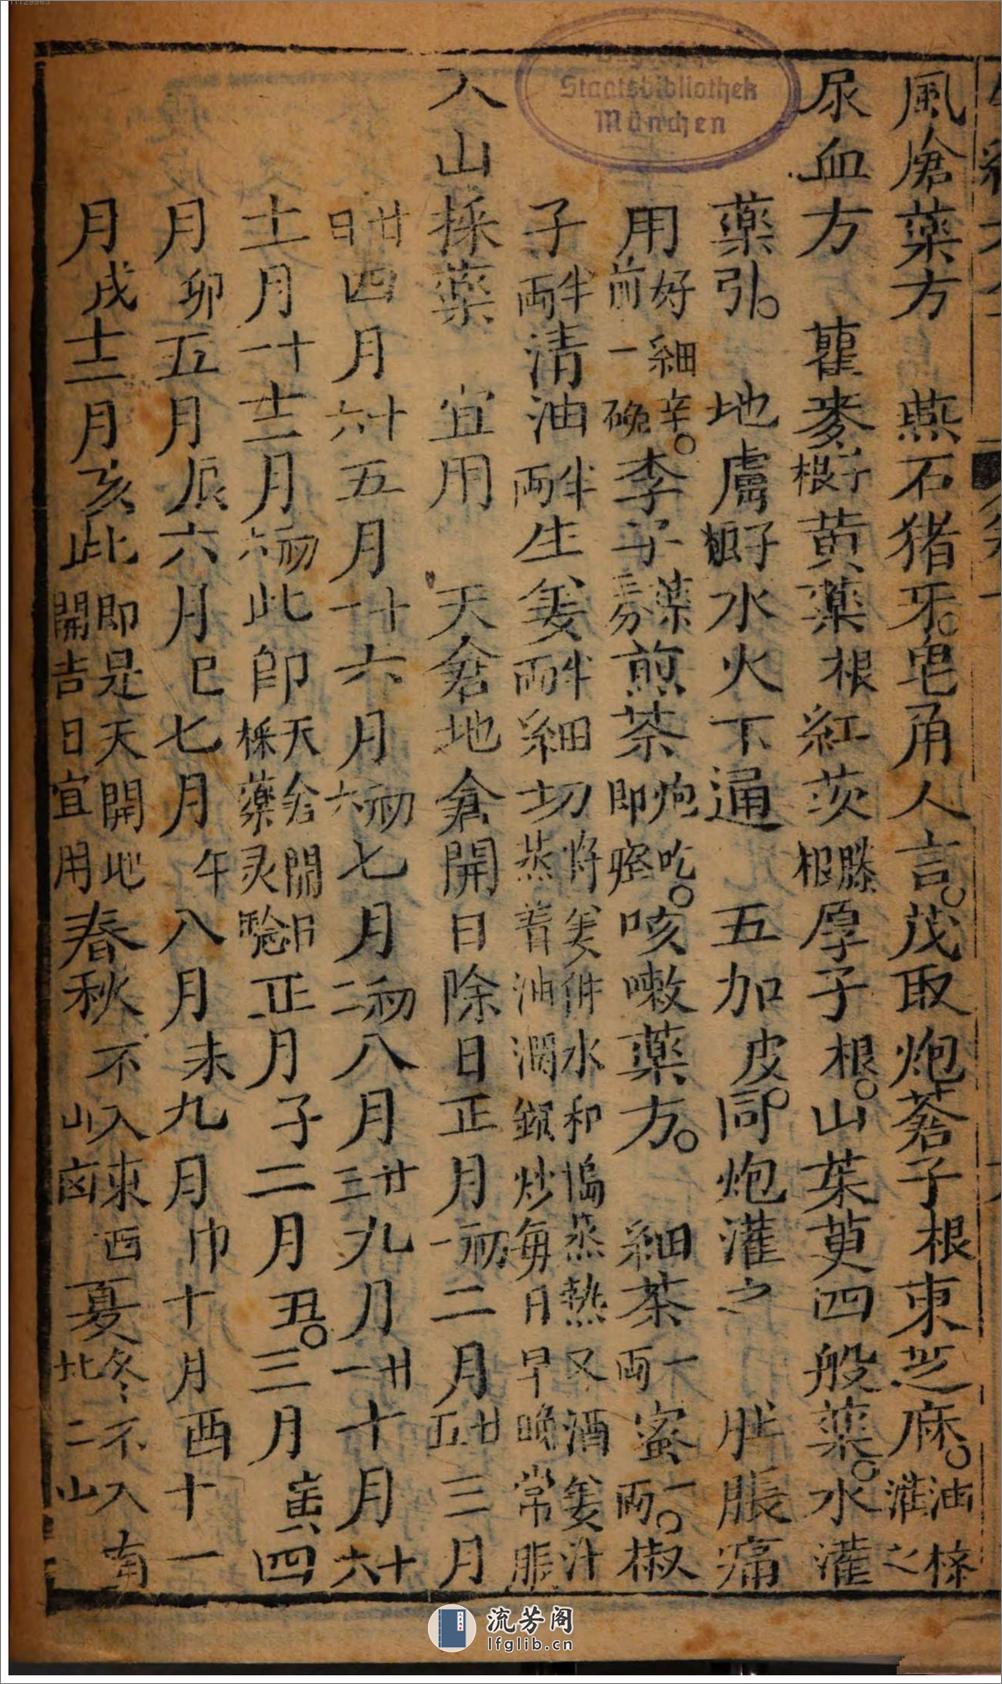 風瘡薬方 燕石猪牙皂甬人言茂取炮蒼子根東芝麻油㨒灌之
尿血方 藋麥好根黄薬根紅茨滕根厚子根山茱萸四般薬水灌
薬引 地膚好水火下通 五加皮同炮灌之 胖脹痛
用好細辛前一碗李子薬三分煎茶炮吃即瘥咳嗽薬方 細茶一両蜜一両椒
子半両清油半両生姜半両細切将姜併水和搗蒸熱又酒姜汁蒸着油潤鎮炒每日早晚常服
入山採薬 宜用 天倉地倉開日除日正月初一二月廿五三月
廿日四月十六五月十一六月初六七月初二八月廿三九月廿一十月十六
十一月十一十二月初六此卽天倉開日採藥灵驗正月子二月丑三月寅四
月卯五月辰六月巳七月午八月未九月申十月酉十一
月戌十二月亥此即是天開地開吉日宜用春秋不入東西山凶夏冬不入南北二山
Bayerische
Staatsbibliothek
München
流芳阁
lfglib.cn
11129365